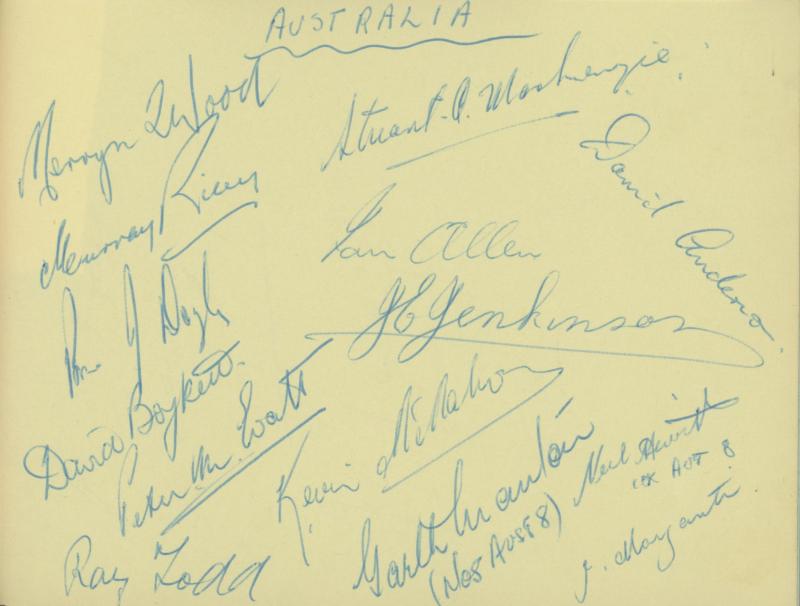 AUSTRALIA
Mervyn Wood
Stuart. A. Mackenzie.
Murray Riley
David Anderson.
Ian Allen
J Doyle
JHJenkinson
David Boykett.
Peter M. Evatt
Kevin McMahon
Neil Hewitt
AUT 8
Garth Manton
(No8 AUS 8)
Ray Todd
J. Morganti.